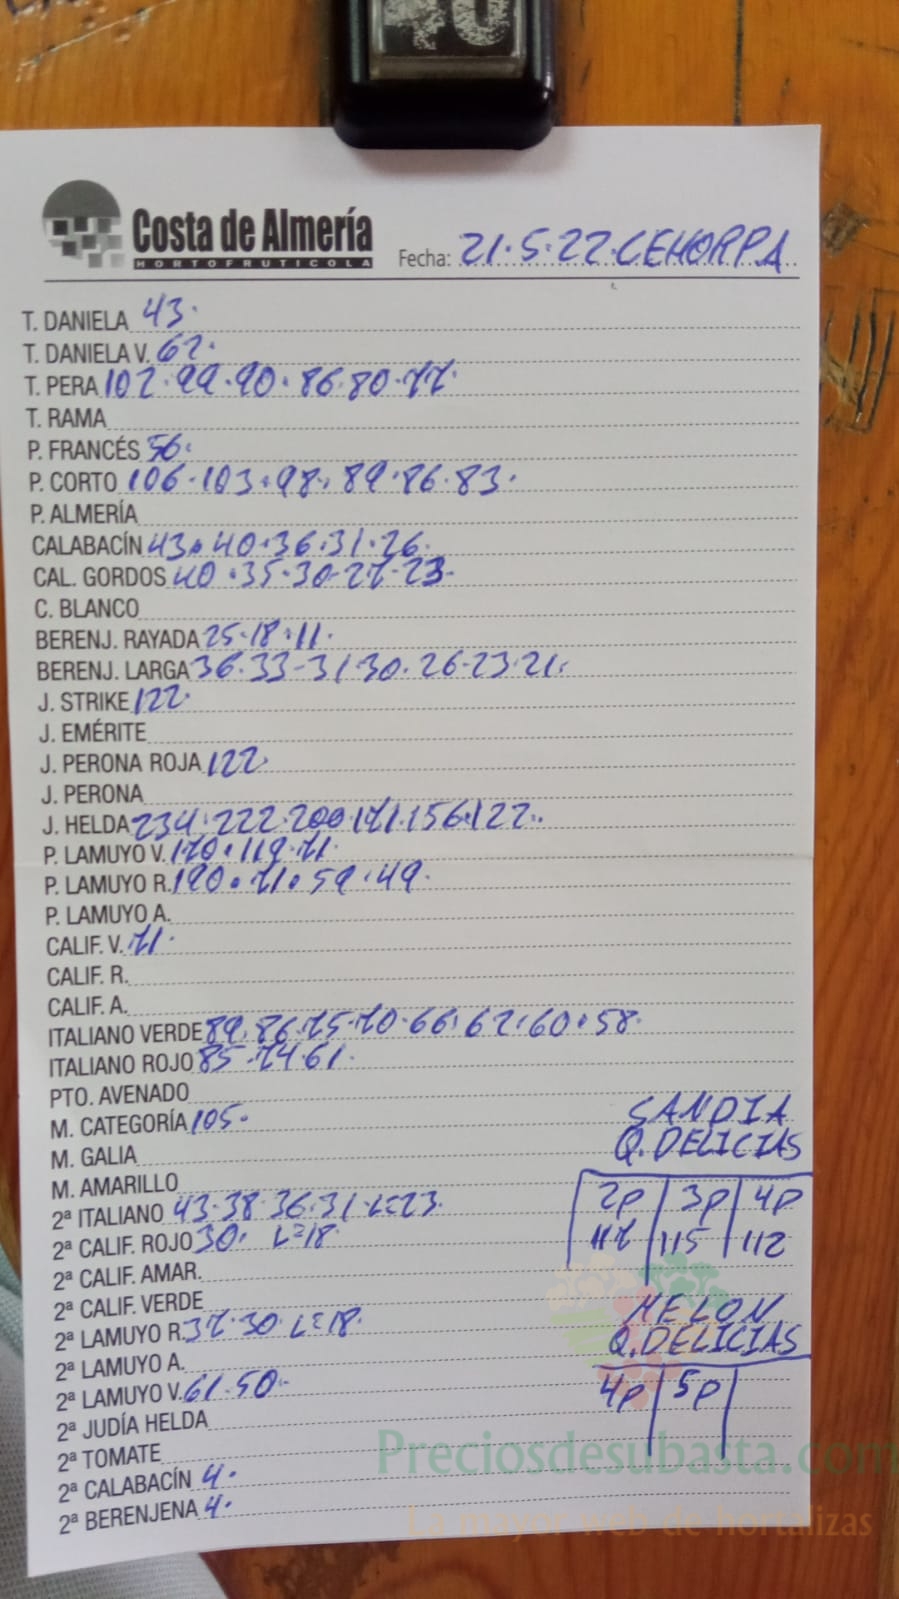 Costa de Almería
HORTOFRUTICOLA
Fecha: 21.5.22.CEHORPA
T. DANIELA 43.
T. DANIELA V. 62.
T. PERA 102.99.90.86.80.77.
T. RAMA
P. FRANCÉS 56.
P. CORTO 106.103.98.89.86.83.
P. ALMERÍA
CALABACÍN 43.40.36.31.26.
CAL. GORDOS 40.35.30-27-23-
C. BLANCO
BERENJ. RAYADA 25.18.11.
BERENJ. LARGA 36.33-31 30.26.23.21.
J. STRIKE 122.
J. EMÉRITE
J. PERONA ROJA 122.
J. PERONA
J. HELDA 234.222.200.171.156.122.
P. LAMUYO V. 170.119.71.
P. LAMUYO R. 190.71.59.49.
P. LAMUYO A.
CALIF. V. 71.
CALIF. R.
CALIF. A.
ITALIANO VERDE 89.86.75-70.66.62.60.58.
ITALIANO ROJO 85.74.61.
PTO. AVENADO
M. CATEGORÍA 105.
M. GALIA
M. AMARILLO
2ª ITALIANO 43.38.36.31.L=23.
2ª CALIF. ROJO 30. L=18.
2ª CALIF. AMAR.
2ª CALIF. VERDE
2ª LAMUYO R. 37.30 L=18.
2ª LAMUYO A.
2ª LAMUYO V. 61.50.
2ª JUDÍA HELDA
2ª TOMATE
2ª CALABACÍN 4.
2ª BERENJENA 4.
SANDIA
Q.DELICIAS
2P 3P 4P
117 115 112
MELON
Q.DELICIAS
4P 5P
Preciosdesubasta.com
La mayor web de hortalizas